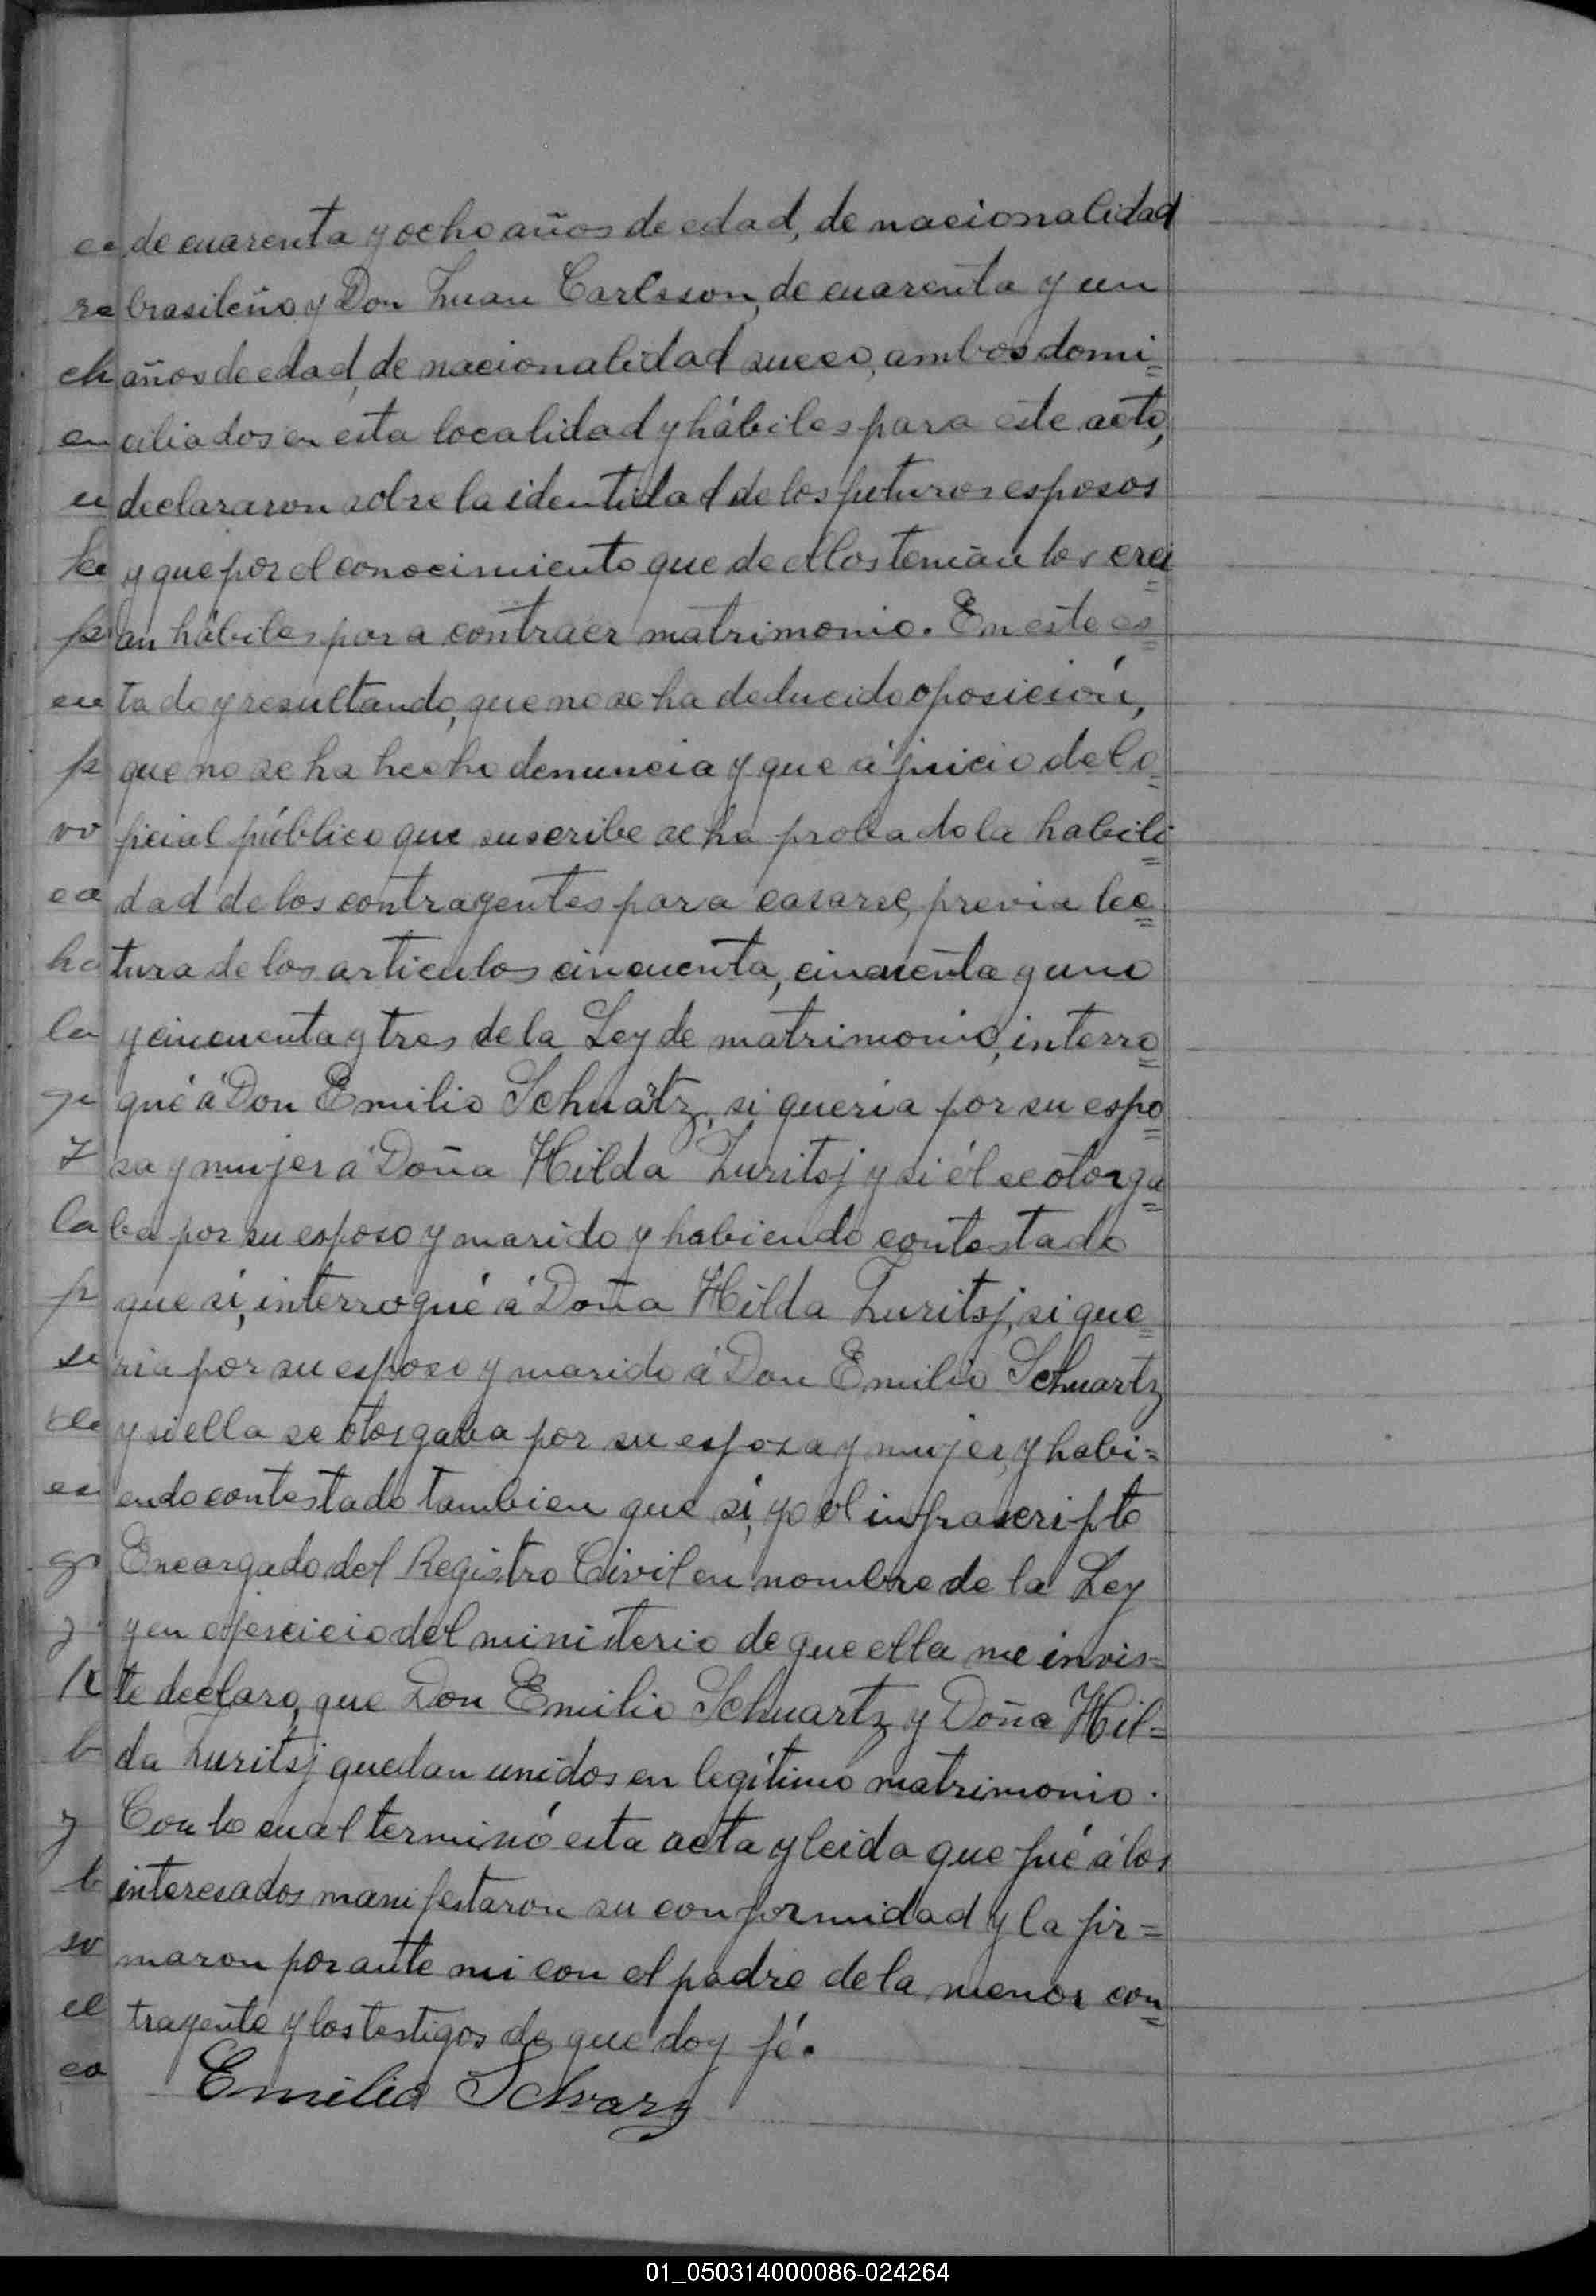 de cuarenta y ocho años de edad, de nacionalidad
brasileño y Don Juan Carlsson, de cuarenta y un
años de edad, de nacionalidad sueco, ambos domi=
ciliados en esta localidad y hábiles para este acto,
declararon sobre la identidad de los futuros esposos
y que por el conocimiento que de ellos tenian los crei=
an hábiles para contraer matrimonio. En este es=
tado y resultando, que no se ha deducido oposición,
que no se ha hecho denuncia y que á juicio del o=
ficial público que suscribe se ha probado la habili=
dad de los contrayentes para casarse, previa lec=
tura de los articulos cincuenta, cincuenta y uno
y cincuenta y tres de la Ley de matrimonio, interro=
gué á Don Emilio Schuartz, si queria por su espo=
sa y mujer á Doña Hilda Zuritsj y si él se otorga=
ba por su esposo y marido y habiendo contestado
que si, interrogué á Doña Hilda Zuritsj, si que=
ria por su esposo y marido á Don Emilio Schuartz
y si ella se otorgaba por su esposa y mujer, y habi=
endo contestado tambien que si, yo el infrascripto
Encargado del Registro Civil en nombre de la Ley
y en ejercicio del ministerio de que ella me invis=
te declaro, que Don Emilio Schuartz y Doña Hil=
da Zuritsj quedan unidos en legítimo matrimonio.
Con lo cual terminó esta acta y leida que fué á los
interesados manifestaron su conformidad y la fir=
maron por ante mi con el padre de la menor con=
trayente y los testigos de que doy fé.
Emilio Schvarz
01_050314000086-024264